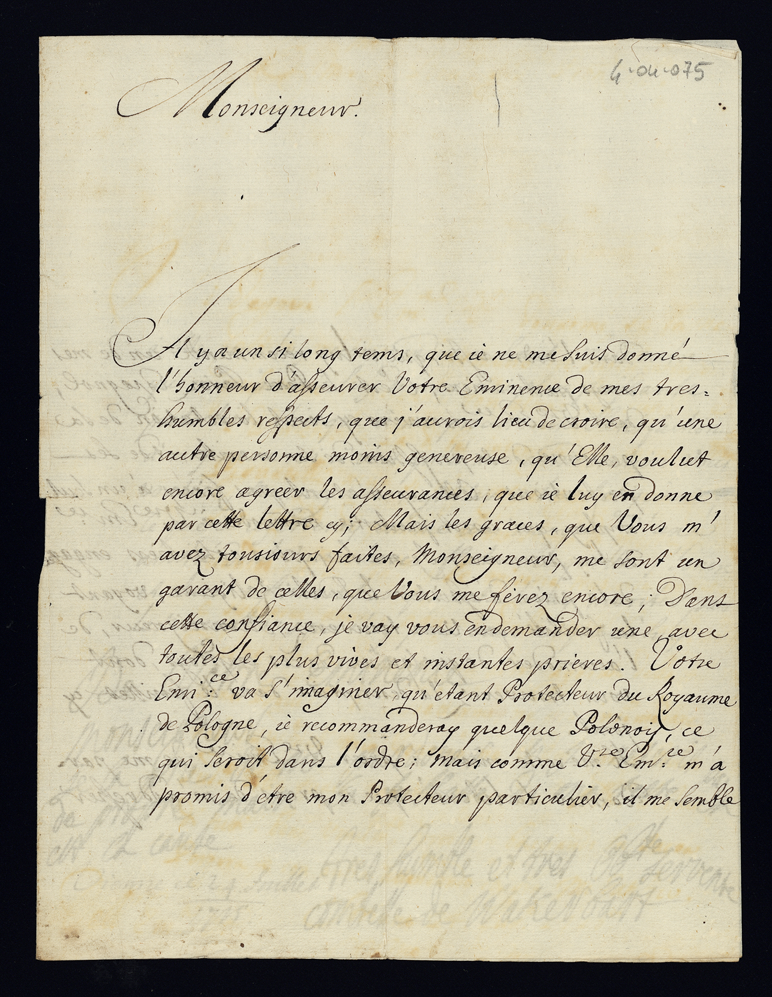 4-04-075
Monseigneur.
Il y a un si long tems, que ie ne me suis donné
l'honneur d'asseurer Votre Eminence de mes tres=
humbles respects, que j'aurois lieu de croire, qu'une
autre personne moins genereuse, qu'Elle, voulut
encore agreer les asseurances, que ie luy en donne
par cette lettre cy; Mais les graces, que Vous m'
avez tousiours faites, Monseigneur, me sont un
garant de celles, que Vous me férez encore; Dans
cette confiance, je vay vous en demander une, avec
toutes les plus vives et instantes prieres. Votre
Emi:ce va s'imaginer, qu'étant Protecteur du Royaume
de Pologne, ie recommanderay quelque Polonois, ce
qui seroit dans l'ordre; mais comme V.re Em:ce m'a
promis d'étre mon Protecteur particulier, il me semble
tres humble et tres
servente
comtesse de